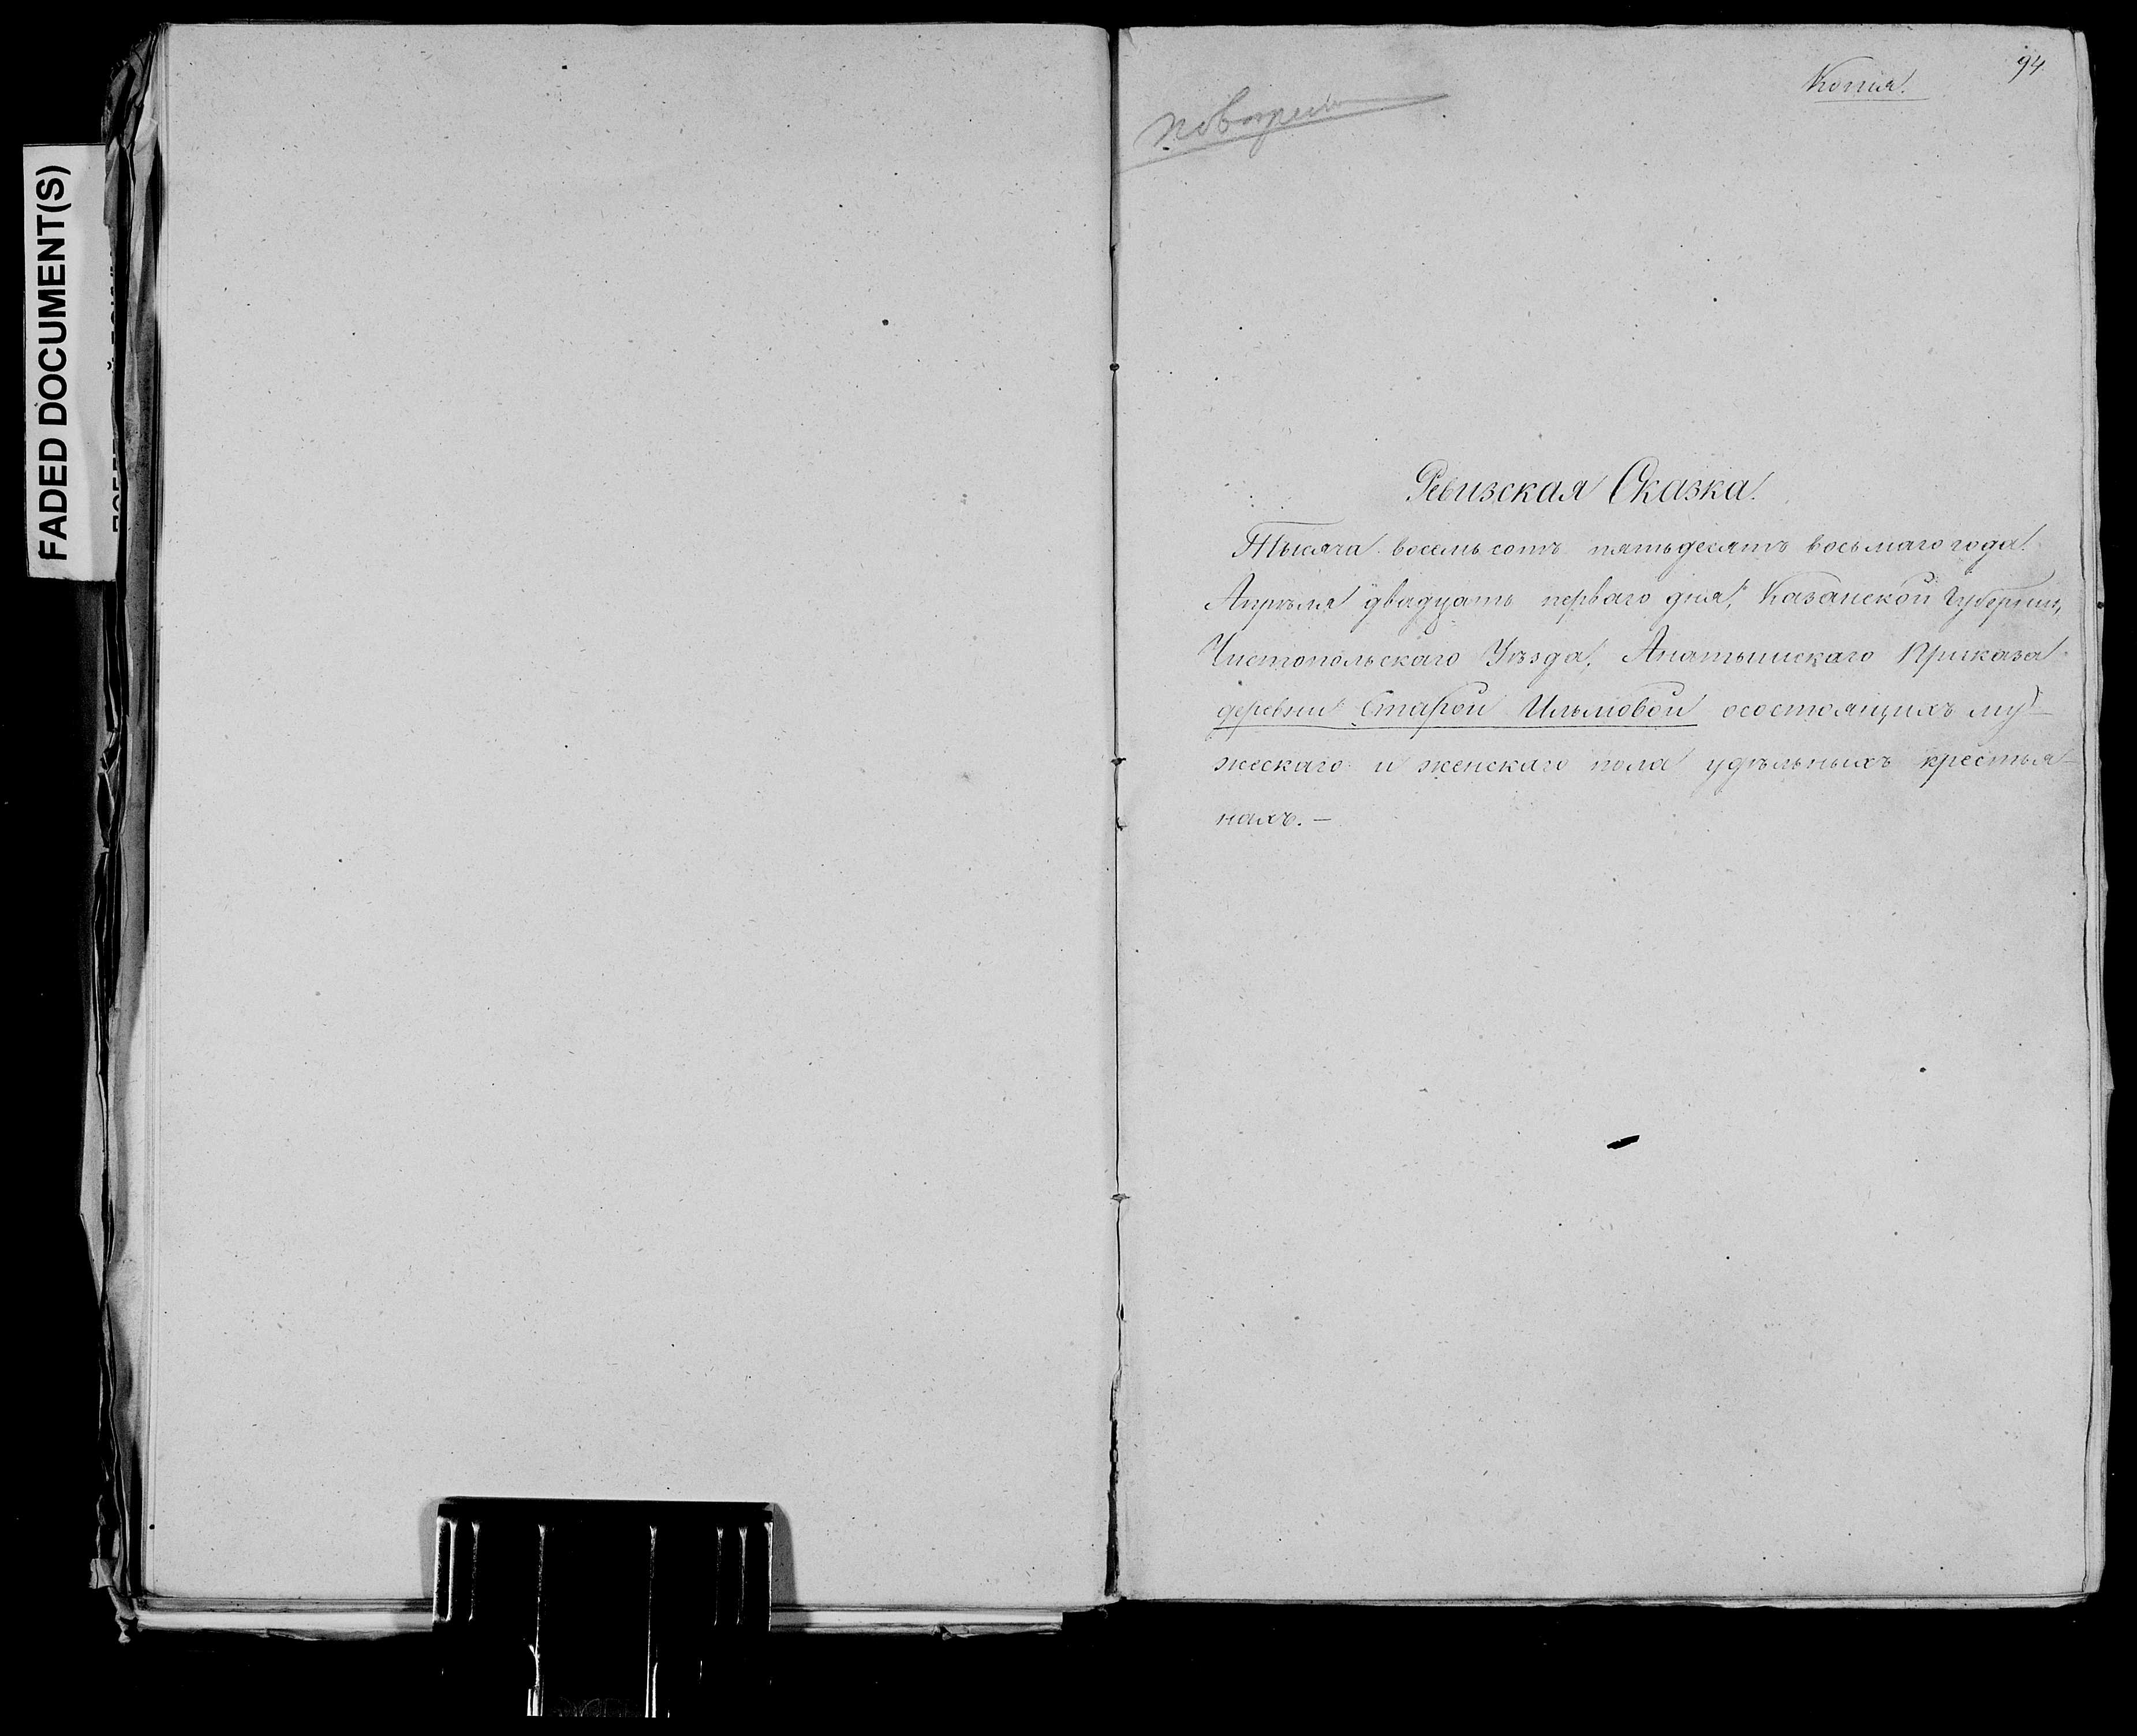 FADED DOCUMENT(S)
94
Копія.
Ревизская Сказка.
Тысяча восемь сотъ пятьдесятъ восьмаго года
Апрѣля двадцать перваго дня, Казанской Губерніи,
Чистопольскаго Уѣзда, Приказа
деревни Старой Ильмовой осостоящихъ му-
жескаго и женскаго пола удѣльныхъ крестья-
нахъ. —